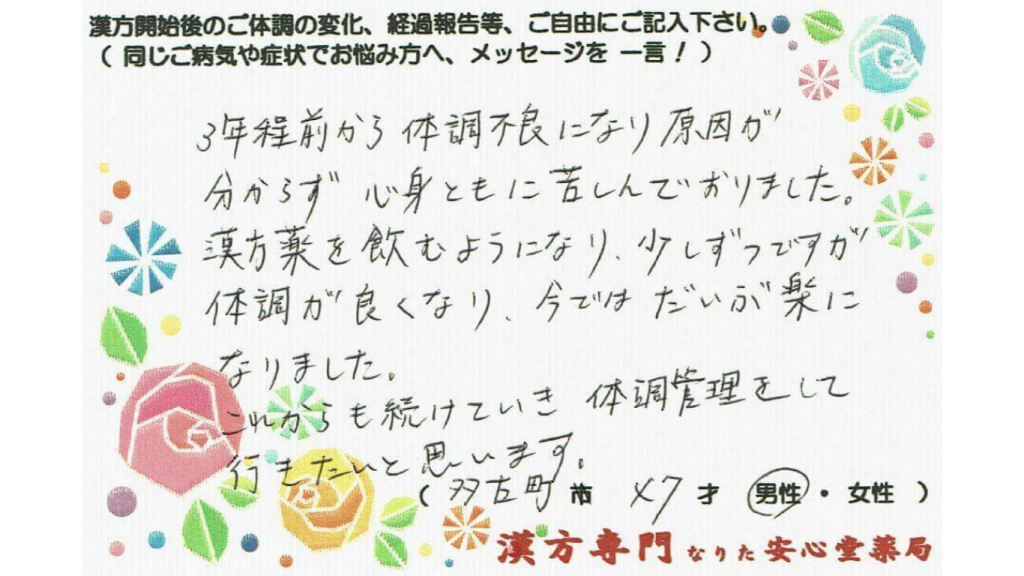 漢方開始後のご体調の変化、経過報告等、ご自由にご記入下さい。
（ 同じご病気や症状でお悩み方へ、メッセージを 一言！）
3年程前から 体調不良になり 原因が
分からず 心身ともに 苦しんでおりました。
漢方薬を飲むようになり、少しずつですが
体調が 良くなり、今では だいぶ 楽に
なりました。
これからも 続けていき 体調管理をして
行きたいと思います。
（ 多古町 市 47 才 男性 ・ 女性 ）
漢方専門 なりた 安心堂薬局